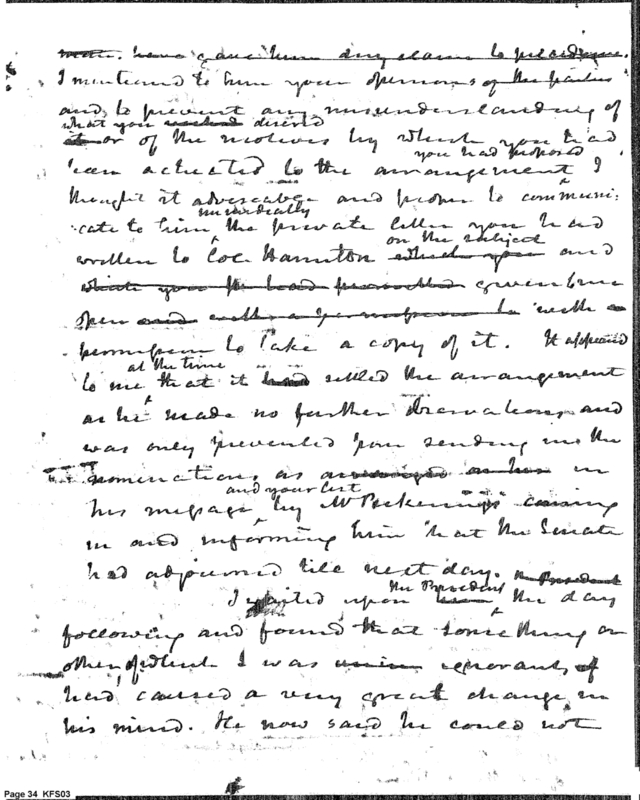 have gave him any claim to precedence.
I mentioned to him your opinions of the parties
and to prevent any misunderstanding of
what you desired
or of the motives by which you had
you had proposed
been actuated to the arrangement I
thought it adviseable and proper to communi-
unreservedly
cate to him the private letter you had
on the subject
written to Col. Hamilton which you and
given him
open and with a permission to with a
permission to take a copy of it. It appeared
at the time
to me that it had settled the arrangement
as he made no further observations, and
was only prevented from sending in the
nominations as arranged in
and your list
his message by Mr Pickering's coming
in and informing him that the Senate
had adjourned till next day. the President
the President
I waited upon him the day
following and found that something or
other of which I was ignorant, of
had, caused a very great change in
his mind. He now said he could not
Page 34 KFS03